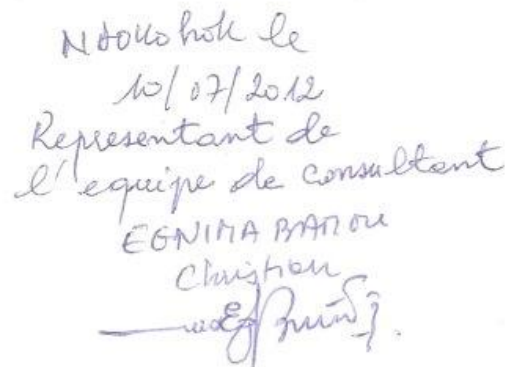 Ndokohok le
10/07/2012
Representant de
l'equipe de consultant
EGNIMA BAMOU
Christian